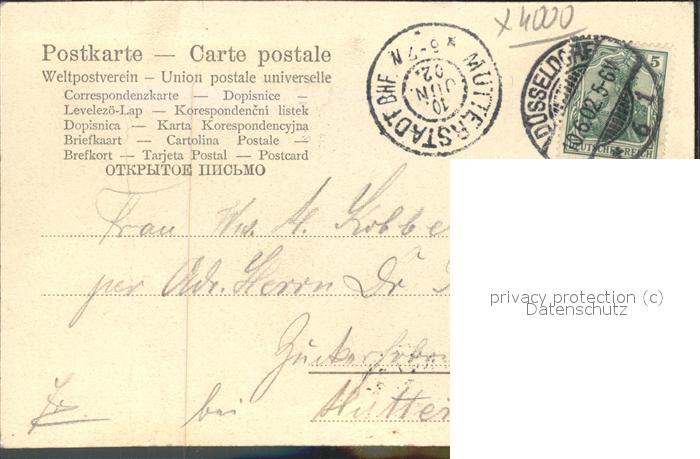 x 4000
Postkarte — Carte postale
Weltpostverein – Union postale universelle
Correspondenzkarte — Dopisnice —
Levelező-Lap — Korespondenční listek
Dopisnica — Karta Korespondencyjna
Briefkaart — Cartolina Postale —
Brefkort — Tarjeta Postal — Postcard
ОТКРЫТОЕ ПИСЬМО
MUTTERSTADT BHF.
* 6-7 N
10
JUN
02.
DÜSSELDORF
6.02.5-6N
1
5
DEUTSCHES REICH
Frau Ww. A. Kobbe
per Adr. Herrn Dr
Zuckerfabri
Fr. bei Mutter
privacy protection (c)
Datenschutz